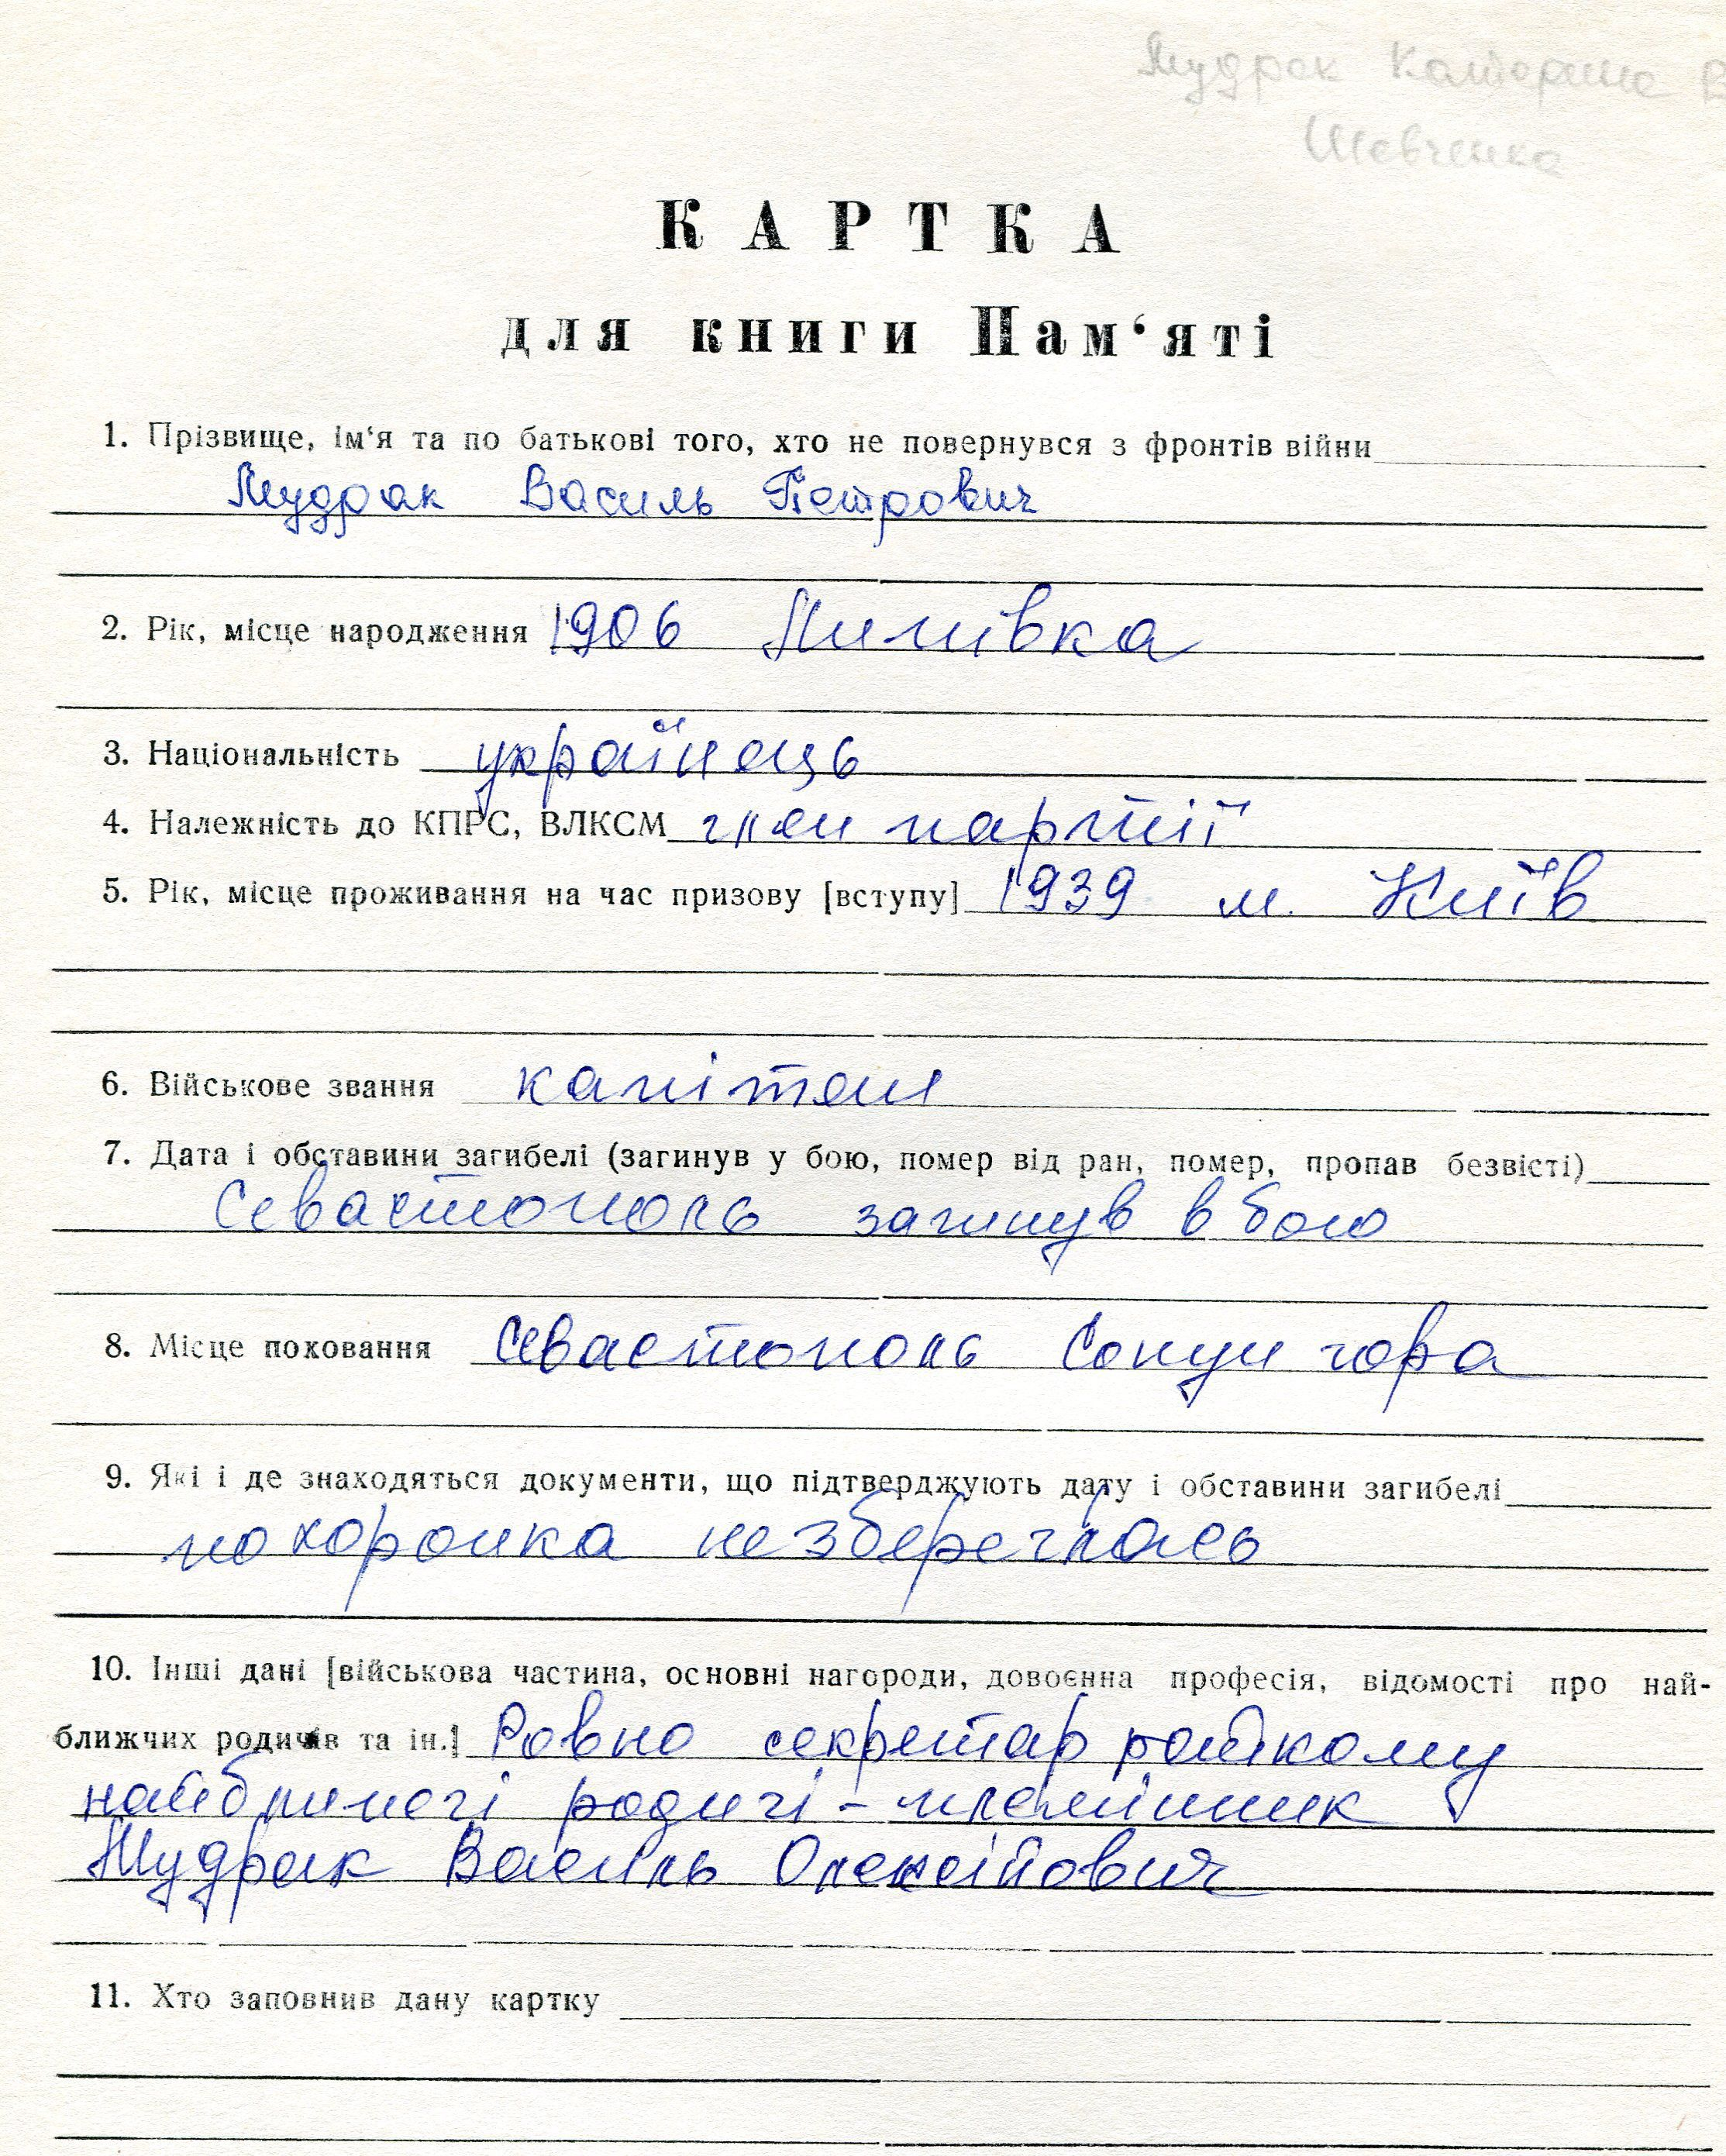 Мудрак Катерина В
Шевченка
КАРТКА
для книги Пам‘яті
1. Прізвище, ім‘я та по батькові того, хто не повернувся з фронтів війни
Мудрак Василь Петрович
2. Рік, місце народження 1906
3. Національність українець
4. Належність до КПРС, ВЛКСМ член партії
5. Рік, місце проживання на час призову [вступу] 1939 м. Київ
6. Військове звання капітан
7. Дата і обставини загибелі (загинув у бою, помер від ран, помер, пропав безвісті)
Севастополь загинув в бою
8. Місце поховання Севастополь Сопун гора
9. Які і де знаходяться документи, що підтверджують дату і обставини загибелі
похоронка не збереглась
10. Інші дані [військова частина, основні нагороди, довоєнна професія, відомості про най-
ближчих родичів та ін.] Ровно секретар райкому
родичі - племінник
Мудрак Василь Олексійович
11. Хто заповнив дану картку